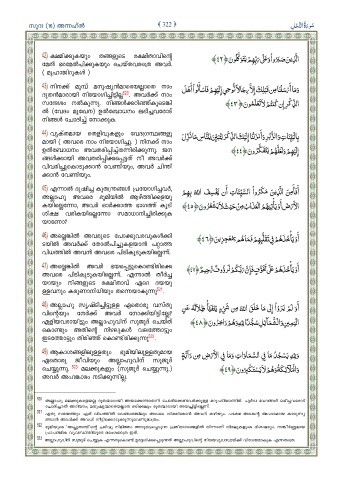 സൂറ: (16) അന്നഹ്ൽ
322
سُورَةُ النَّحْلِ
42) ക്ഷമിക്കുകയും തങ്ങളുടെ രക്ഷിതാവിന്റെ
മേൽ ഭരമേൽപിക്കുകയും ചെയ്തവരത്രെ അവർ.
( മുഹാജിറുകൾ )
الَّذِينَ صَبَرُوا وَعَلَىٰ رَبِّهِمْ يَتَوَكَّلُونَ ﴿٤٢﴾
43) നിനക്ക് മുമ്പ് മനുഷ്യൻമാരെയല്ലാതെ നാം
ദൂതൻമാരായി നിയോഗിച്ചിട്ടില്ല. അവർക്ക് നാം
സന്ദേശം നൽകുന്നു. നിങ്ങൾക്കറിഞ്ഞുകൂടെങ്കി
ൽ (വേദം മുഖേന) ഉൽബോധനം ലഭിച്ചവരോട്
നിങ്ങൾ ചോദിച്ച് നോക്കുക.
وَمَا أَرْسَلْنَا مِن قَبْلِكَ إِلَّا رِجَالًا نُّوحِي إِلَيْهِمْ فَاسْأَلُوا أَهْلَ
الذِّكْرِ إِن كُنتُمْ لَا تَعْلَمُونَ ﴿٤٣﴾
44) വ്യക്തമായ തെളിവുകളും വേദഗ്രന്ഥങ്ങളു
മായി ( അവരെ നാം നിയോഗിച്ചു. ) നിനക്ക് നാം
ഉൽബോധനം അവതരിപ്പിച്ചുതന്നിരിക്കുന്നു. ജന
ങ്ങൾക്കായി അവതരിപ്പിക്കപ്പെട്ടത് നീ അവർക്ക്
വിവരിച്ചുകൊടുക്കാൻ വേണ്ടിയും, അവർ ചിന്തി
ക്കാൻ വേണ്ടിയും.
بِالْبَيِّنَاتِ وَالزُّبُرِ وَأَنزَلْنَا إِلَيْكَ الذِّكْرَ لِتُبَيِّنَ لِلنَّاسِ مَا نُزِّلَ
إِلَيْهِمْ وَلَعَلَّهُمْ يَتَفَكَّرُونَ ﴿٤٤﴾
45) എന്നാൽ ദുഷിച്ച കുതന്ത്രങ്ങൾ പ്രയോഗിച്ചവർ,
അല്ലാഹു അവരെ ഭൂമിയിൽ ആഴ്ത്തിക്കളയു
കയില്ലെന്നോ, അവർ ഓർക്കാത്ത ഭാഗത്ത് കൂടി
ശിക്ഷ വരികയില്ലെന്നോ സമാധാനിച്ചിരിക്കുക
യാണോ?
أَفَأَمِنَ الَّذِينَ مَكَرُوا السَّيِّئَاتِ أَن يَخْسِفَ اللَّهُ بِهِمُ
الْأَرْضَ أَوْ يَأْتِيَهُمُ الْعَذَابُ مِنْ حَيْثُ لَا يَشْعُرُونَ ﴿٤٥﴾
46) അല്ലെങ്കിൽ അവരുടെ പോക്കുവരവുകൾക്കി
ടയിൽ അവർക്ക് തോൽപിച്ചുകളയാൻ പറ്റാത്ത
വിധത്തിൽ അവൻ അവരെ പിടികൂടുകയില്ലെന്ന്.
أَوْ يَأْخُذَهُمْ فِي تَقَلُّبِهِمْ فَمَا هُم بِمُعْجِزِينَ ﴿٤٦﴾
47) അല്ലെങ്കിൽ അവർ ഭയപ്പെട്ടുകൊണ്ടിരിക്കെ
അവരെ പിടികൂടുകയില്ലെന്ന്. എന്നാൽ തീർച്ച
യായും നിങ്ങളുടെ രക്ഷിതാവ് ഏറെ ദയയു
ള്ളവനും കരുണാനിധിയും തന്നെയാകുന്നു.
أَوْ يَأْخُذَهُمْ عَلَىٰ تَخَوُّفٍ فَإِنَّ رَبَّكُمْ لَرَءُوفٌ رَّحِيمٌ ﴿٤٧﴾
48) അല്ലാഹു സൃഷ്ടിച്ചിട്ടുള്ള ഏതൊരു വസ്തു
വിന്റെയും നേർക്ക് അവർ നോക്കിയിട്ടില്ലേ?
എളിയവരായിട്ടും അല്ലാഹുവിന് സുജൂദ് ചെയ്ത്
കൊണ്ടും അതിന്റെ നിഴലുകൾ വലത്തോട്ടും
ഇടത്തോട്ടും തിരിഞ്ഞ് കൊണ്ടിരിക്കുന്നു.
أَوَلَمْ يَرَوْا إِلَىٰ مَا خَلَقَ اللَّهُ مِن شَيْءٍ يَتَفَيَّأُ ظِلَالُهُ عَنِ
الْيَمِينِ وَالشَّمَائِلِ سُجَّدًا لِّلَّهِ وَهُمْ دَاخِرُونَ ﴿٤٨﴾
49) ആകാശങ്ങളിലുള്ളതും ഭൂമിയിലുള്ളതുമായ
ഏതൊരു ജീവിയും അല്ലാഹുവിന് സുജൂദ്
ചെയ്യുന്നു. മലക്കുകളും (സുജൂദ് ചെയ്യുന്നു.)
അവർ അഹങ്കാരം നടിക്കുന്നില്ല.
وَلِلَّهِ يَسْجُدُ مَا فِي السَّمَاوَاتِ وَمَا فِي الْأَرْضِ مِن دَابَّةٍ
وَالْمَلَائِكَةُ وَهُمْ لَا يَسْتَكْبِرُونَ ﴿٤٩﴾